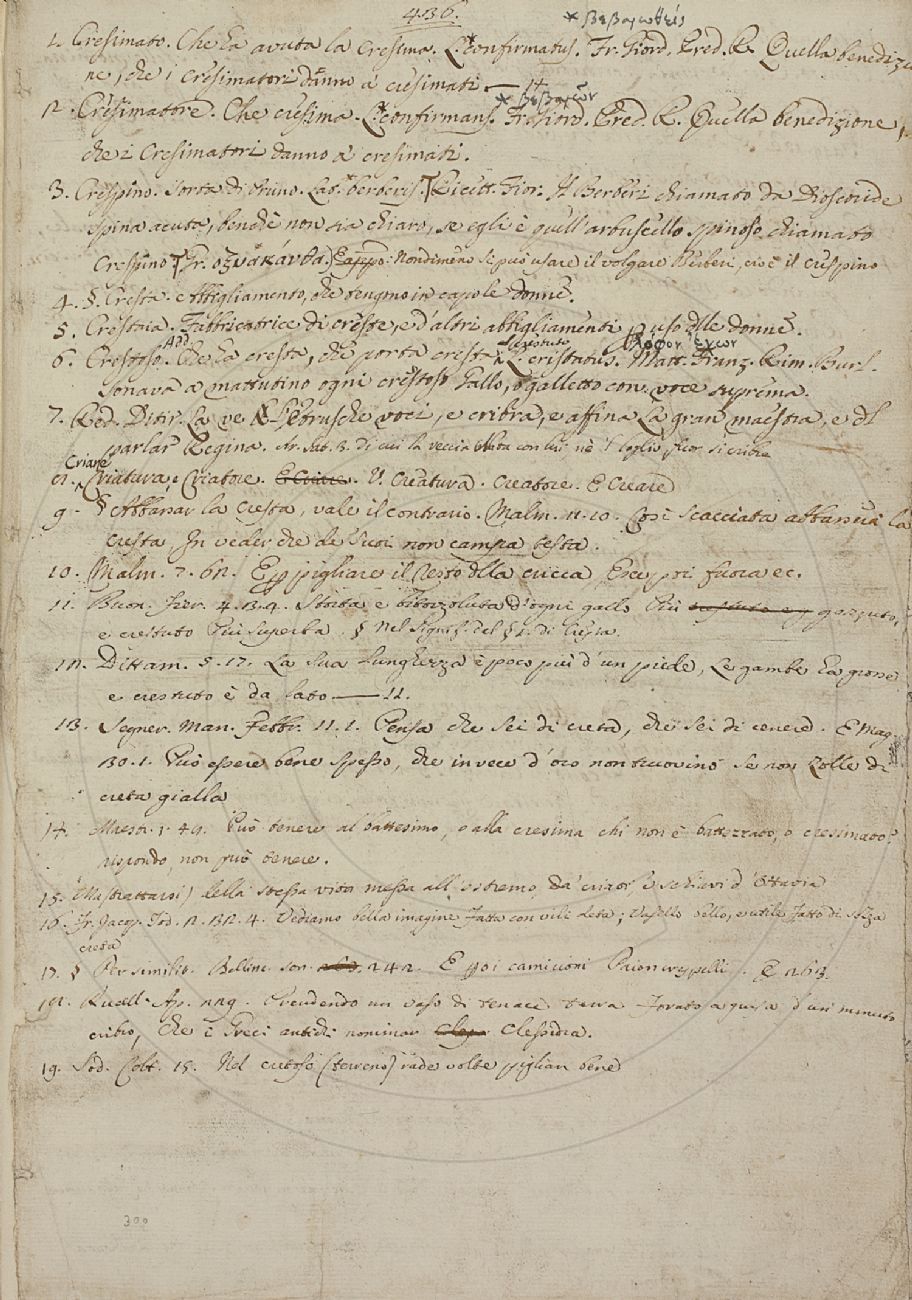 436.
* βεβαιωθείς
1. Cresimato. Che ha avuta la cresima. L.*confirmatus. Fr. Giord. Pred. R. Quella benedizio
ne, che i cresimatori danno a' cresimati. — 14
* βεβαιῶν
2. Cresimatore. Che cresima. L.*confirmans. Fr. Giord. Pred. R. Quella benedizione,
che i Cresimatori danno a' cresimati.
3. Crespino. Sorta di Lat. berberis. Ricett. Fior. Il Berberi chiamato da Dioscoride
spina acuta, benchè non sia chiaro, se egli è quell'arbuscello spinoso chiamato
Crespino Gr. ὀξυάκανθα. E appo: Nondimeno si può usare il volgare Berberi, cioè il crespino
4. §. Cresta. e Abbigliamento, che tengono in capo le donne.
5. Crestaia. Fabbricatrice di creste, e d'altri abbigliamenti p uso delle donne.
6. Crestoso. Add. Che ha cresta, che porta cresta Crestuto L. cristatus. λόφον ἔχων Matt. Franz. Rim. Burl.
Sonava a mattutino ogni crestoso Gallo, o galletto con voce suprema.
7. Red. Ditir. La ve l'Etrusche voci, e cribra, e affina La gran maestra, e del
parlar Regina. Ar. Sat. 3. di cui la veccia con lui, nè 'l loglio fuor si cribra
Criare
8. Criatura, e Criatore. E Criare. V. Creatura. Creatore. E Creare
9. § Abbassar la cresta, vale il contrario. Malm. 11. 10. Così scacciata abbassuà la
cresta In veder che de' suoi non campa testa.
10. Malm. 7. 62. E p pigliare il resto della cricca, Esce poi fuora ec.
11. Buon. Fier. 4. 3. 4. Storta e bitorzoluta d'ogni gallo Più gozzuto,
e crestuto Più superba. § Nel signif. del § I. di Cresta.
12. Dittam. 5. 17. La sua lunghezza è poco più d'un piede, Le gambe ha grosse
e crestuto è da lato — 11.
13. Segner. Man. Febbr. 11. 1. Pensa che sei di creta, che sei di cenere. E Mag.
30. 1. Può essere bene spesso, che invece d'oro non ritrovino se non zolle di
creta gialla
14. Maestr. 1. 49. Può tenere al battesimo, o alla cresima chi non è battezzato, o cresimato?
rispondo, non può tenere.
15. (Mastrettarsi) Della stessa vita messa all'estremo da' criati, e schiavi d'Ottavia
16. Fr. Jacop. Tod. 2. 32. 4. Vediamo bella imagine Fatta con vile deta; Vasello bello, e utile Fatto di sozza
creta
17. § Per similit. Bellinc. son. 242. E poi camicioni Paion crespelli. E 263.
18. Rucell. Ap. 229. Prendendo un vaso di tenace terra Forato a guisa d'un minuto
cribro, Che i Greci antichi nominar Clessidra.
19. Sod. Colt. 15. Nel cretoso (terreno) rade volte piglian bene
300